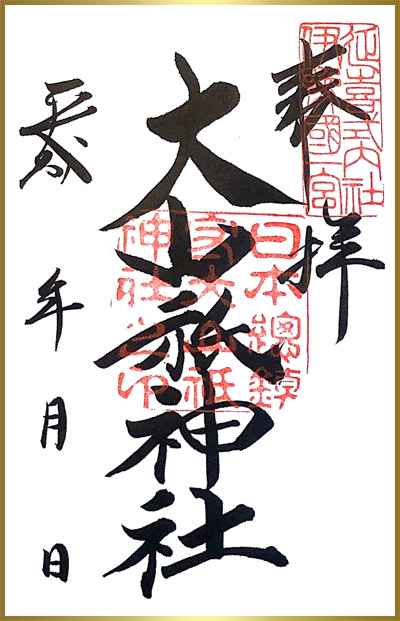 奉拝
延喜式内社
伊豫國一宮
大山祇神社
日本總鎮
守大山祇
神社之印
平成 年 月 日